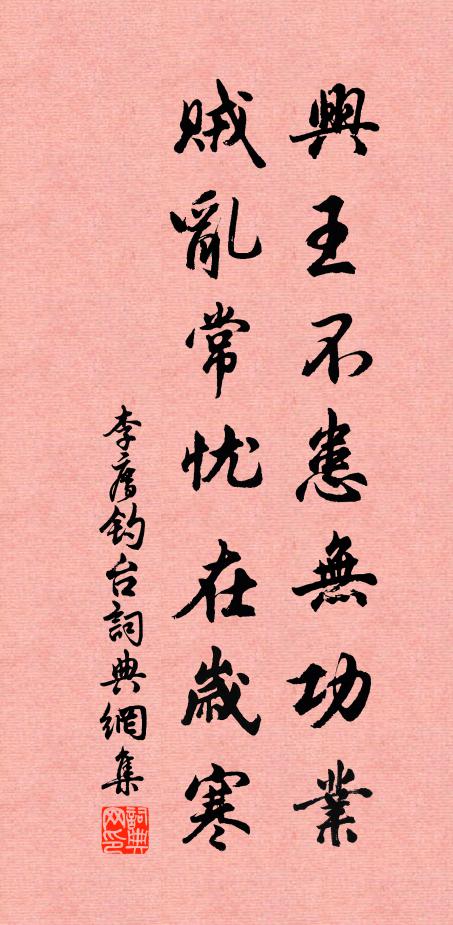 興王不患無功業
賊亂常忧在歲寒
李廌釣台詞典網集
詞典网印